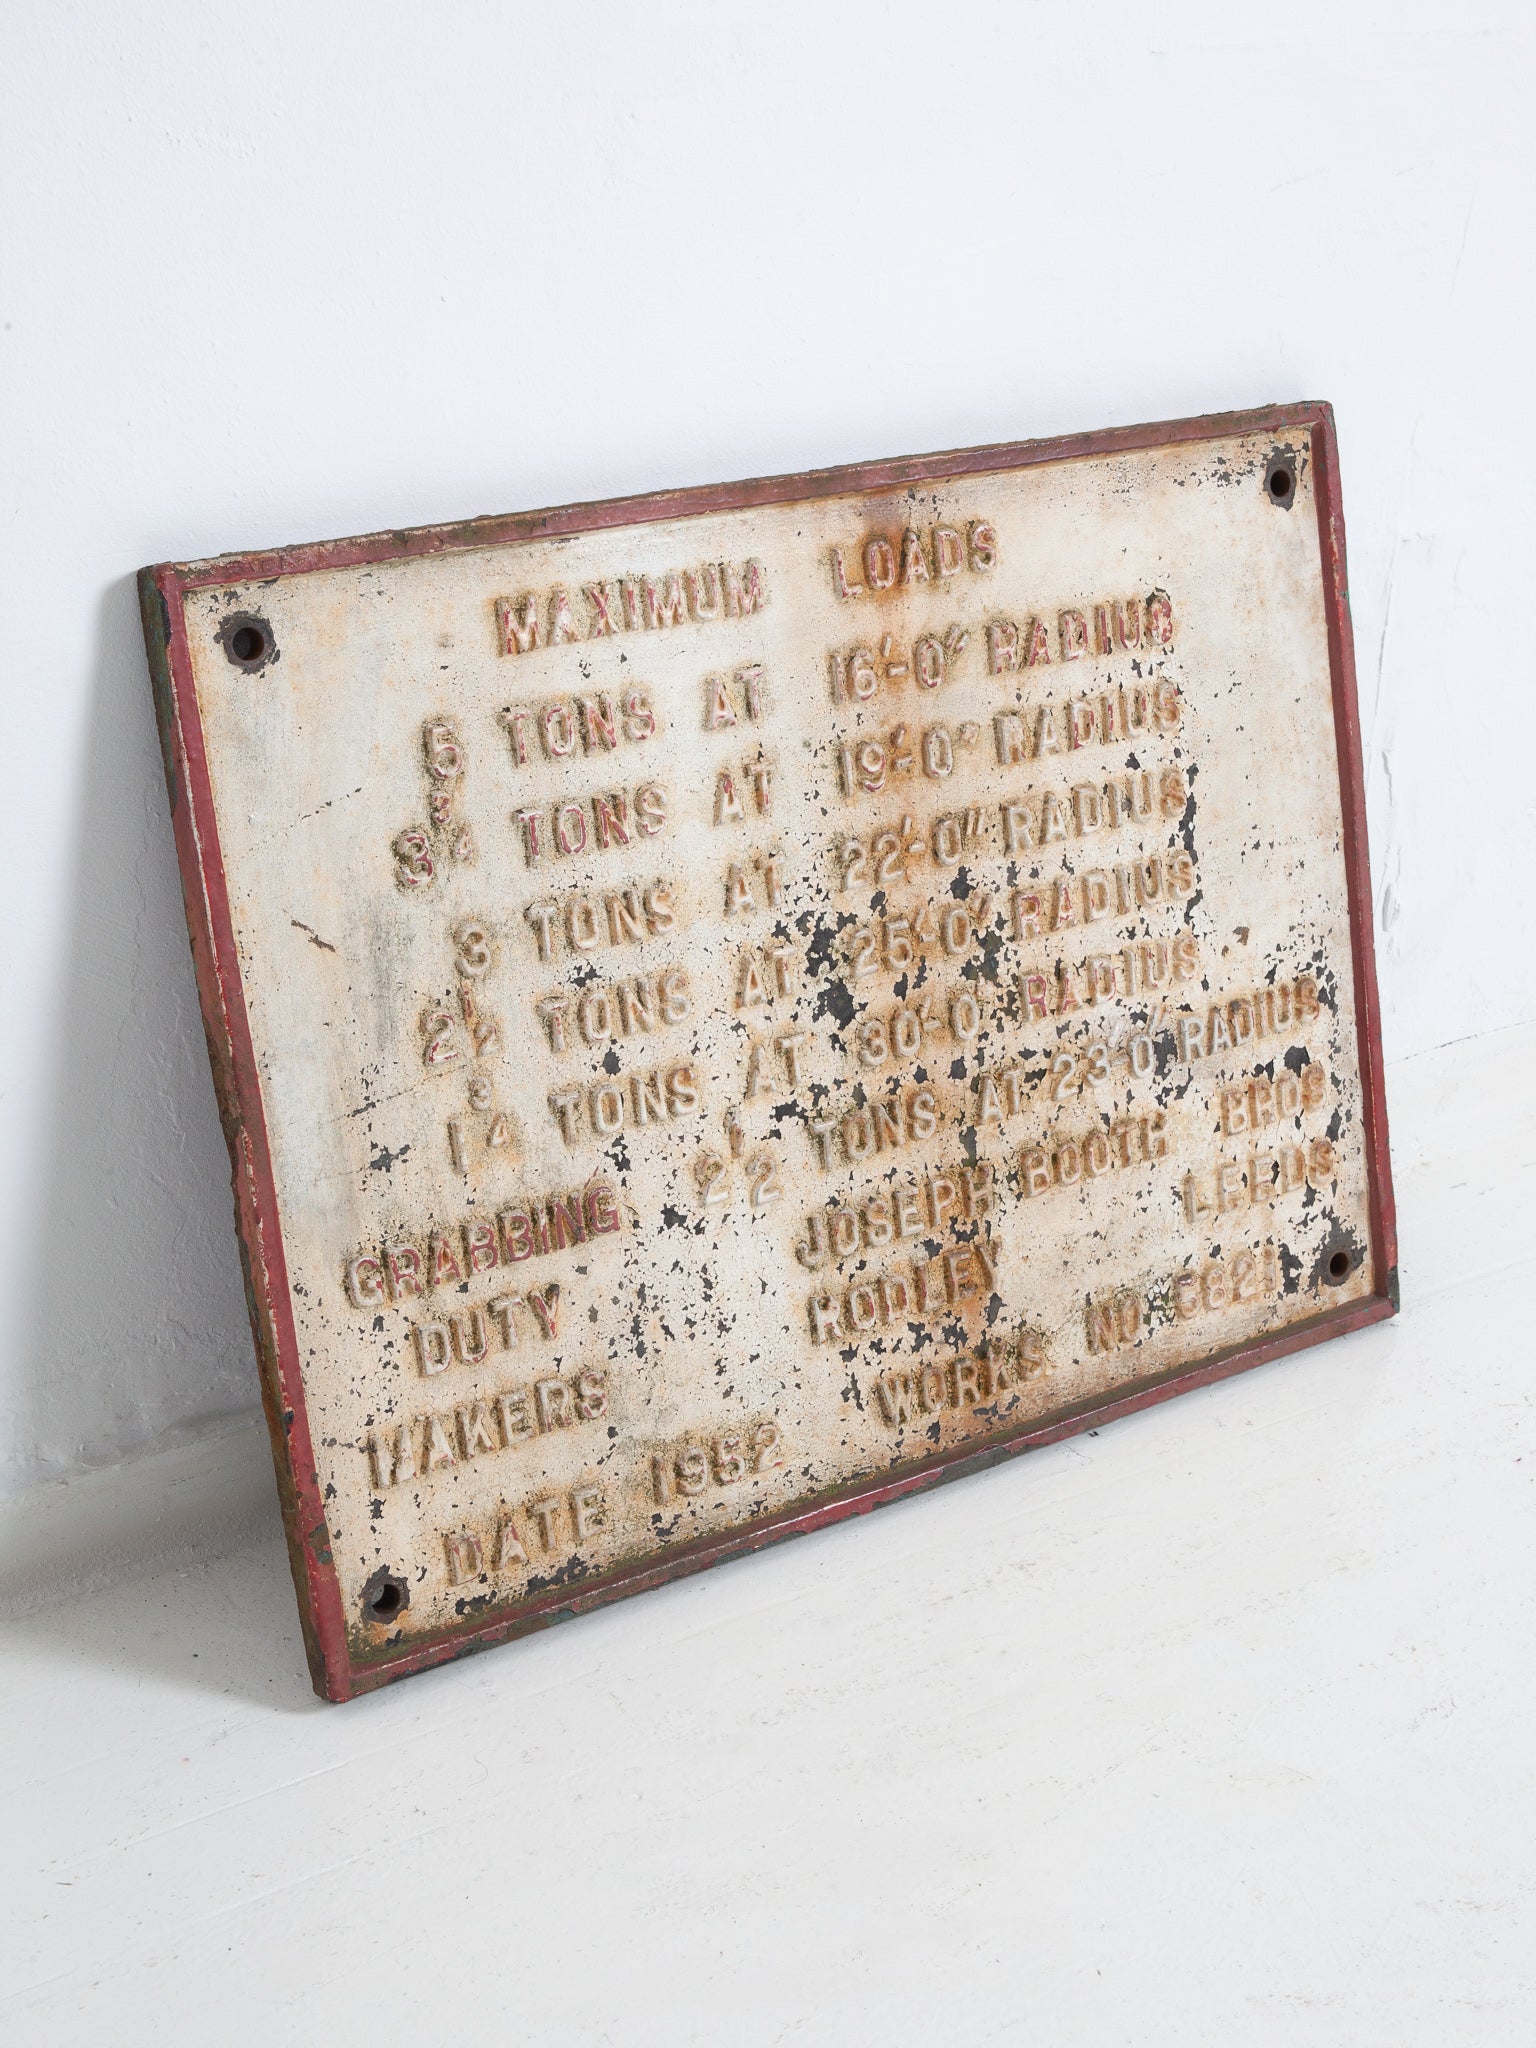 MAXIMUM LOADS
5 TONS AT 16'-0" RADIUS
3 3/4 TONS AT 19'-0" RADIUS
3 TONS AT 22'-0" RADIUS
2 1/2 TONS AT 25'-0" RADIUS
1 3/4 TONS AT 30'-0 RADIUS
GRABBING 2 1/2 TONS AT 23'-0" RADIUS
DUTY
MAKERS JOSEPH BOOTH BROS
RODLEY LEEDS
DATE 1952 WORKS NO 5821